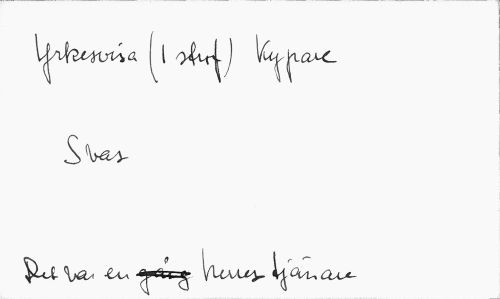 Yrkesvisa (1 strof) Kypare
Svar
Det var en gång herres tjänare